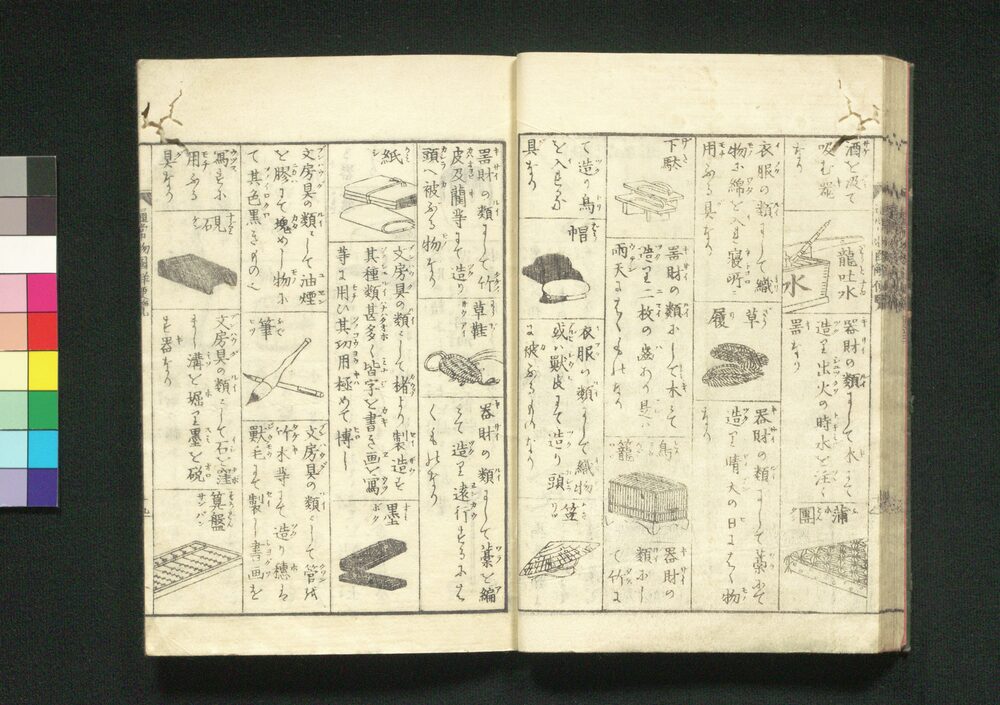 酒を汲て
吸む器
なり
龍吐水
水
器財の類にして木にて
造り出火の時水を注ぐ
器なり
蒲團
衣服の類にして織
物に綿を入れ寝所に
用ふる具なり
草履
器財の類にして藁にて
造り晴天の日にはく物
なり
下駄
器財の類にして木にて
造り二枚の歯あり
雨天にはくものなり
鳥籠
器財の
類にし
て竹に
て造り鳥
を入るゝ
具なり
帽
衣服の類にして織物
或は獣皮にて造り頭
に被ふるものなり
笠
器財の類にして竹
皮及藺等にて造り
頭へ被ふる物なり
草鞋
器財の類にして藁を編
みて造り遠行するには
くものなり
紙
文房具の類にして楮より製造す
其種類甚多く皆字を書き画を寫
等に用ひ其功用極めて博し
墨
文房具の類にして油煙
を膠にて塊めし物に
て其色黒きもの
筆
文房具の類にして管は
竹木等にて造り穂は
獣毛にて製し書画を
寫すに
用ふる
具なり
硯石
文房具の類にして石を窪
まし溝を堀り墨を硯
す器なり
算盤